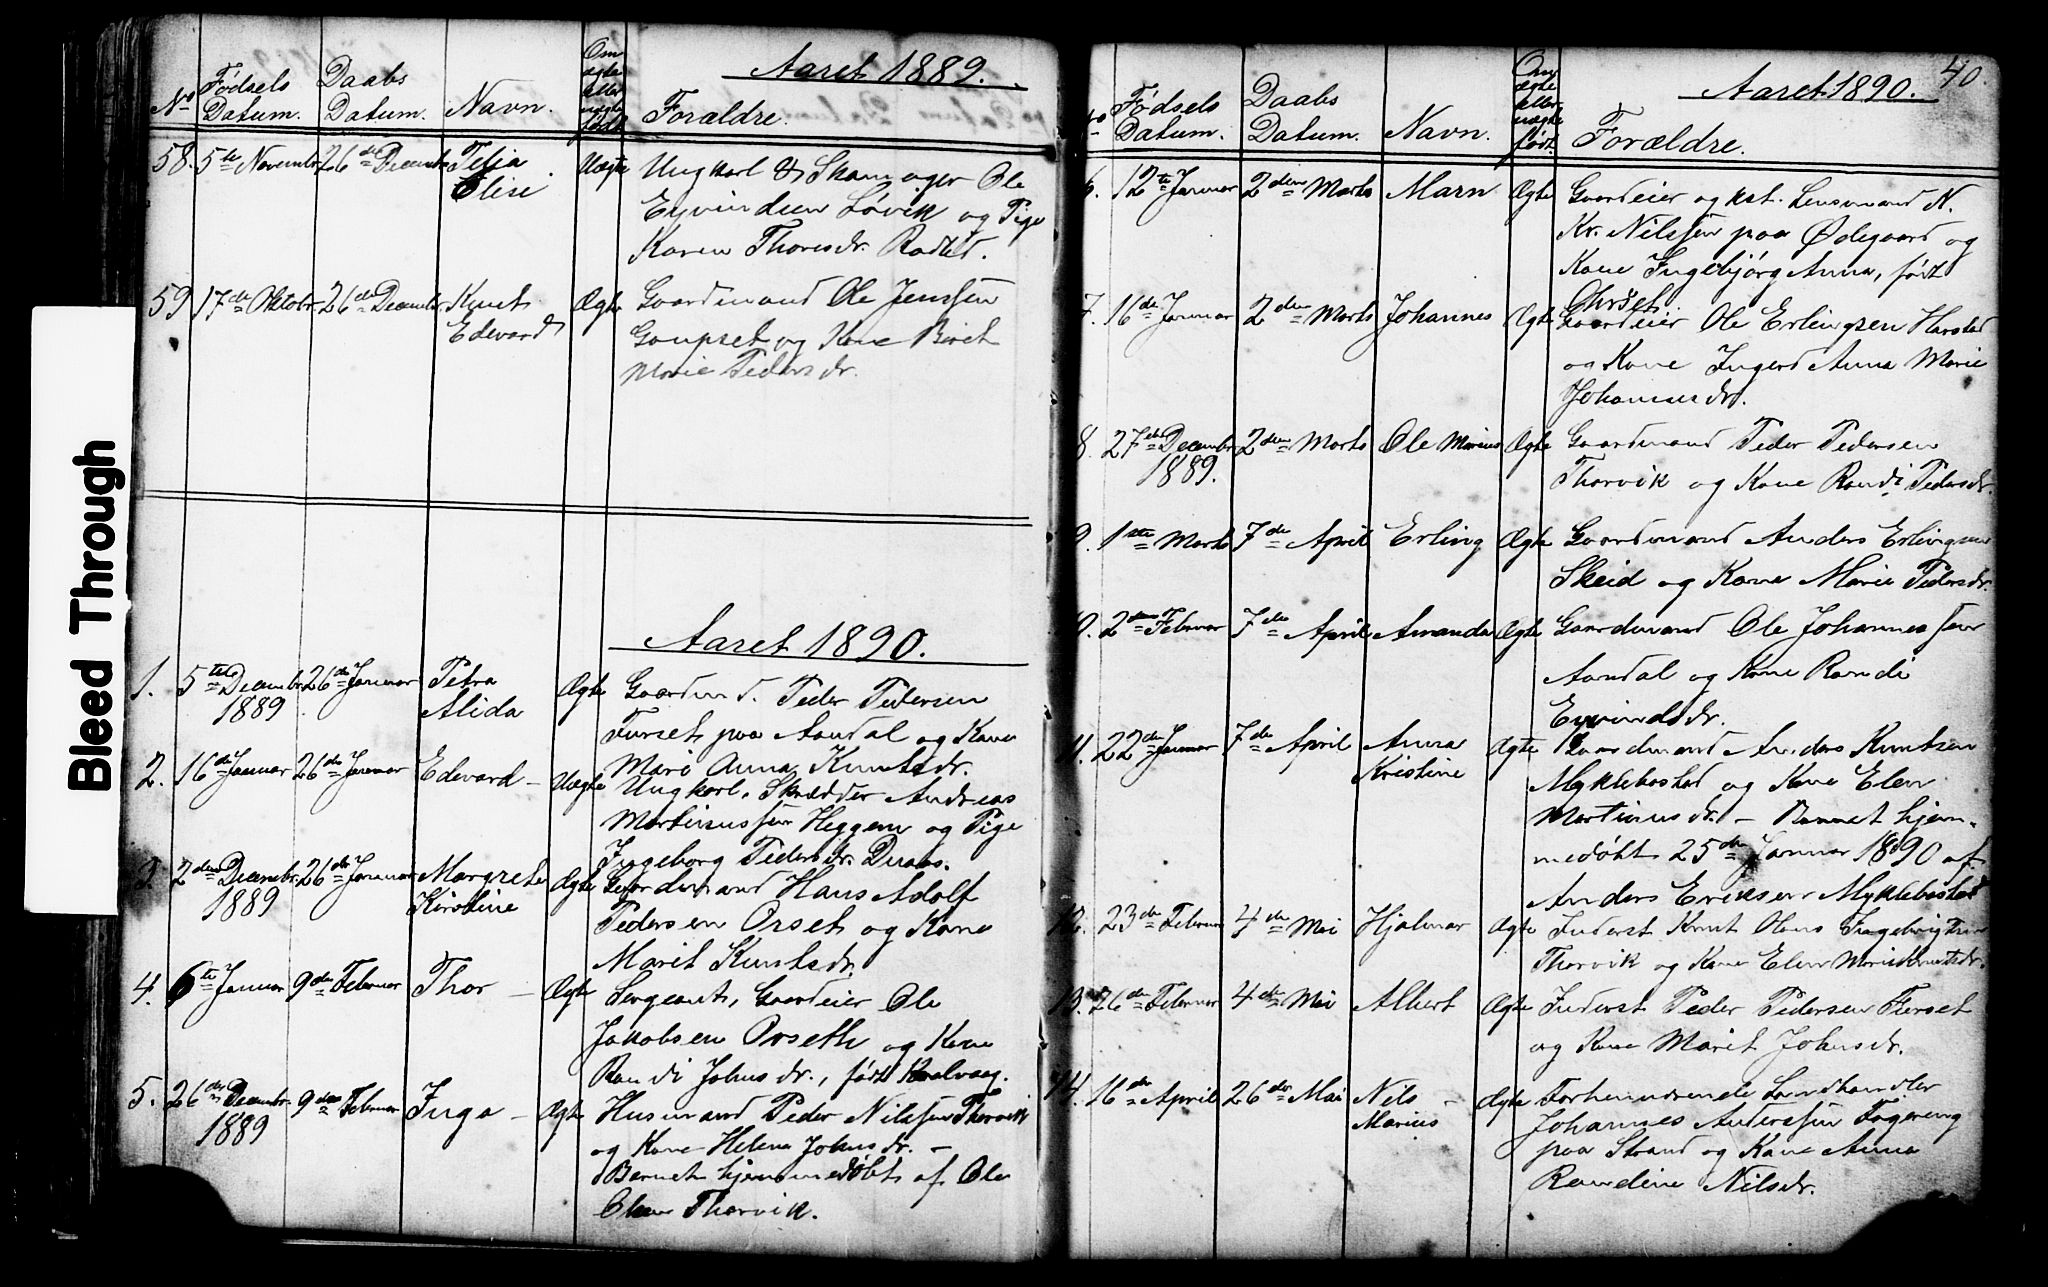 Bleed Through
Aaret 1889.
No Fødsels Datum. Daabs Datum. Navn. Om ægte eller uægte født Forældre.
58. 5te Novembr. 26de Decembr. Elise Uægte Ungkarl & Skomager Ole
Eyvindsen Løvik og Pige
Karen Thoresdr. Rødsed.
59 17de Oktobr. 26de Decembr. Knut Edvard Ægte Gaardmand Ole Jenssen
Goupset og Kone Beret
Marie Pedersdr.
Aaret 1890.
1. 5te Decembr. 1889 26de Januar Petra Alida Ægte Gaardmd. Peder Pedersen
Furset paa Aandal og Kone
Mari Anna Knutsdr.
2. 16de Januar 26de Januar Edvard – Uægte Ungkarl, Skrædder Andreas
Martinussen Heggem og Pige
Ingeborg Pedersdr. Duaas.
3. 2den Decembr. 1889 26de Januar Margrete Kirstine Ægte Gaardmand Hans Adolf
Pedersen Orset og Kone
Marit Knutsdr.
4. 6te Januar 9de Februar Thor – Ægte Sergeant, Gaardeier Ole
Jakobsen Orseth og Kone
Randi Johnsdr., født Kvalvaag.
5. 26de Decembr. 1889 9de Februar Inga – Ægte Husmand Peder Nilssen Thorvik
og Kone Helene Johnsdr. –
Barnet hjemmedøbt af Ole
Olsen Thorvik.
40.
Aaret 1890.
No Fødsels Datum. Daabs Datum. Navn. Om ægte eller uægte født. Forældre.
6. 12te Januar 2den Marts Marn Ægte Gaardeier og kst. Lensmand N.
Kr. Nilssen paa Ødegaard og
Kone Ingebjørg Anna, født
Ohrset.
7. 16de Januar 2den Marts Johannes Ægte Gaardeier Ole Erlingsen Harstad
og Kone Ingerd Anna Marie
Johannesdr.
8. 27de Decembr. 1889. 2den Marts Ole Marius Ægte Gaardmand Peder Pedersen
Thorvik og Kone Randi Pedersdr.
9. 1ste Marts 7de April Erling Ægte Gaardmand Anders Erlingsen
Skeid og Kone Marie Pedersdr.
10. 2den Februar 7de April Amanda Ægte Gaardmand Ole Johannessen
Aandal og Kone Randi
Eyvindsdr.
11. 22de Januar 7de April Anna Kristine Ægte Gaardmand Anders Knutsen
Myklebostad og Kone Elen
Martinusdr. – Barnet hjem-
medøbt 25de Januar 1890 af
Anders Eriksen Myklebostad
12. 23de Februar 4de Mai Hjalmar Ægte Inderst Knut Olaus Ingebrigtsen
Thorvik og Kone Elen Marie Knutsdr.
13. 26de Februar 4de Mai Albert Ægte Inderst Peder Pedersen Furset
og Kone Marit Johnsdr.
14. 16de April 26de Mai Nils Marius – Ægte Forhenværende Landhandler
Johannes Anderssen Fagereng
paa Strand og Kone Anna
Randine Nilsdr.